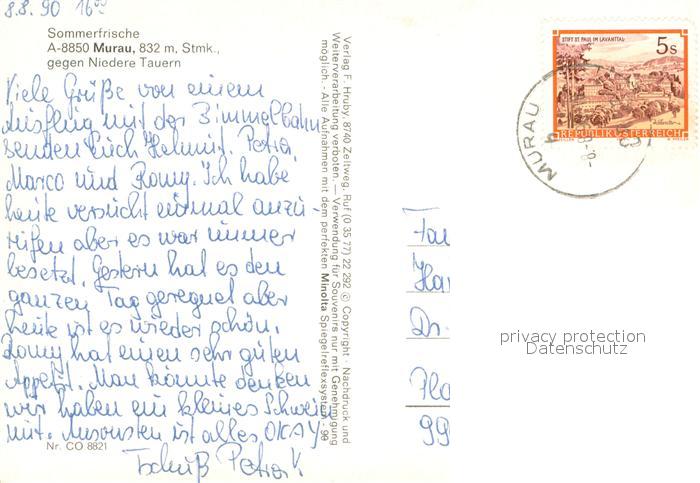 8.8.90 16⁰⁰
Sommerfrische
A-8850 Murau, 832 m, Stmk.,
gegen Niedere Tauern
Viele Grüße von einem
Ausflug mit der Bimmelbahn
senden Euch Helmut, Petra,
Marco und Romy. Ich habe
heute versucht einmal anzu-
rufen aber es war immer
besetzt. Gestern hat es den
ganzen Tag geregnet aber
heute ist es wieder schön.
Romy hat einen sehr guten
Appetit. Man könnte denken
wir haben ein kleines Schwein
mit. Ansonsten ist alles OKAY
Tschüß Petra!
Nr. CO 8821
Verlag F. Hruby, 8740 Zeltweg. Ruf (0 35 77) 22 292 © Copyright · Nachdruck und
Weiterverarbeitung verboten. — Verwendung für Souvenirs nur mit Genehmigung
möglich. - Alle Aufnahmen mit dem perfekten Minolta Spiegelreflexsystem - 99
STIFT ST. PAUL IM LAVANTTAL
5s
REPUBLIK ÖSTERREICH
MURAU
Fa
Ha
Dr.
99
privacy protection
Datenschutz